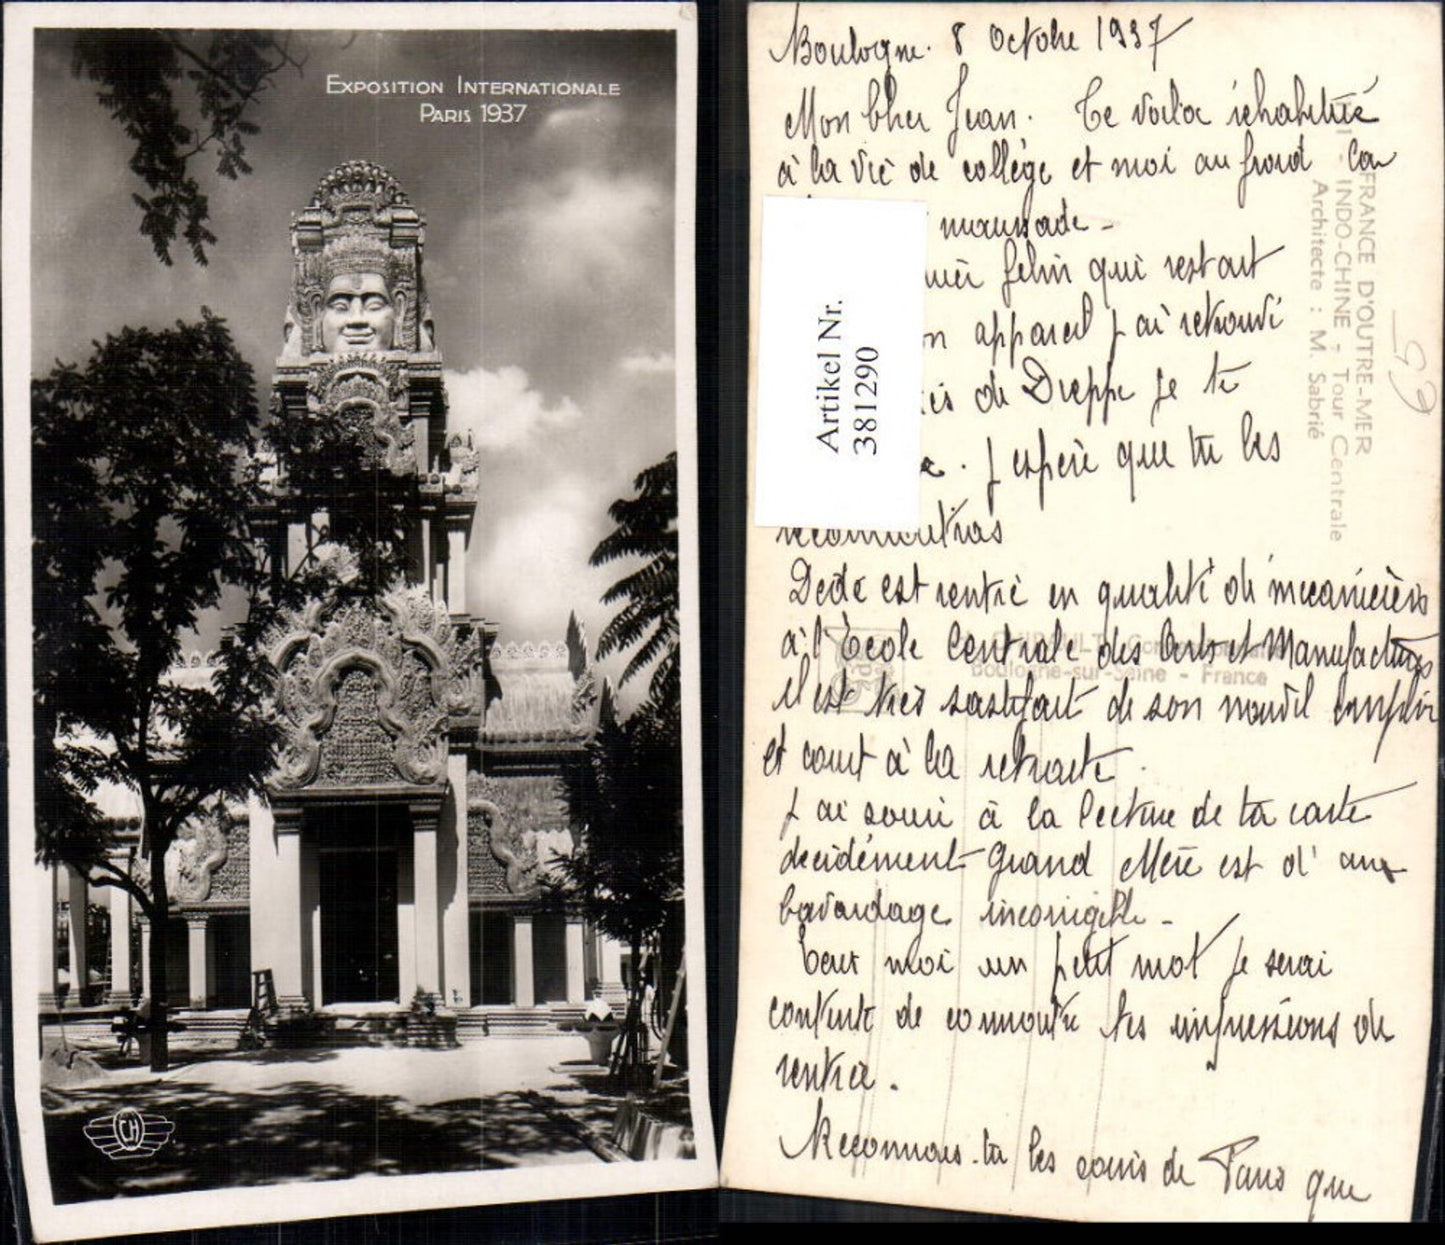 EXPOSITION INTERNATIONALE
PARIS 1937
CH
Boulogne. 8 Octobre 1937
Mon Cher Jean. Te voila réhabitué
à la vie de collège et moi au froid
maussade -
qui restait
appareil j ai retrouvé
de Dieppe je te
. j espère que tu les
reconnaitras
Dédé est rentré en qualité de mécanicien
à l'École Centrale des Arts et Manufactures
il est très satisfait de son nouvel emploi
et court à la retraite.
j ai souri à la lecture de ta carte
décidément Grand Mère est d' un
bavardage incorrigible -
moi un petit mot je serai
contente de connaitre tes impressions de
rentrée.
Reconnais-tu les de Paris que
Artikel Nr.
381290
FRANCE D'OUTRE-MER
INDO-CHINE - Tour Centrale
Architecte : M. Sabrié
Boulogne-sur-Seine - France